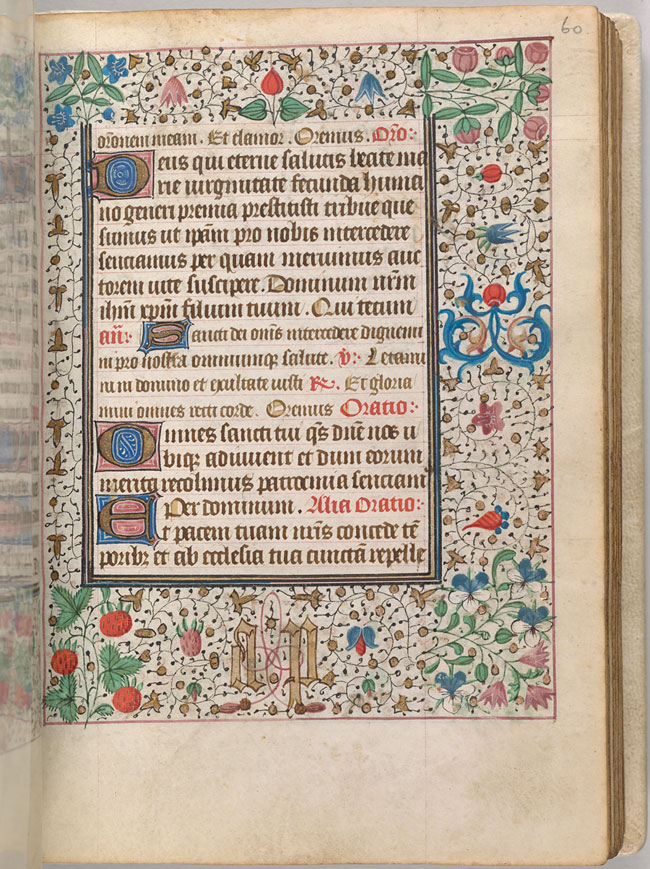 60
orōnem meam. Et clamor. Oremus. Orō:
Deus qui eterne salutis beate ma
rie virginitate fecunda huma
no generi premia prestitisti tribue que
sumus ut ipām pro nobis intercedere
senciamus per quam meruimus auc
torem vite suscipere. Dominum nr̄m
ihm̄ xpm̄ filium tuum. Qui tecum
an̄: Sancti dei omēs intercedere dignemi
ni pro nostra omniumqꝫ salute. v: Letami
ni in domino et exultate iusti R. Et gloria
mini omnes recti corde. Oremus Oratio:
Omnes sancti tui qs̄ dn̄e nos u
biqꝫ adiuvent et dum eorum
merita recolimus patrocinia senciam
Per dominum. Alia Oratio:
Et pacem tuam nr̄is concede tē
poribꝫ et ab ecclesia tua cunctā repelle